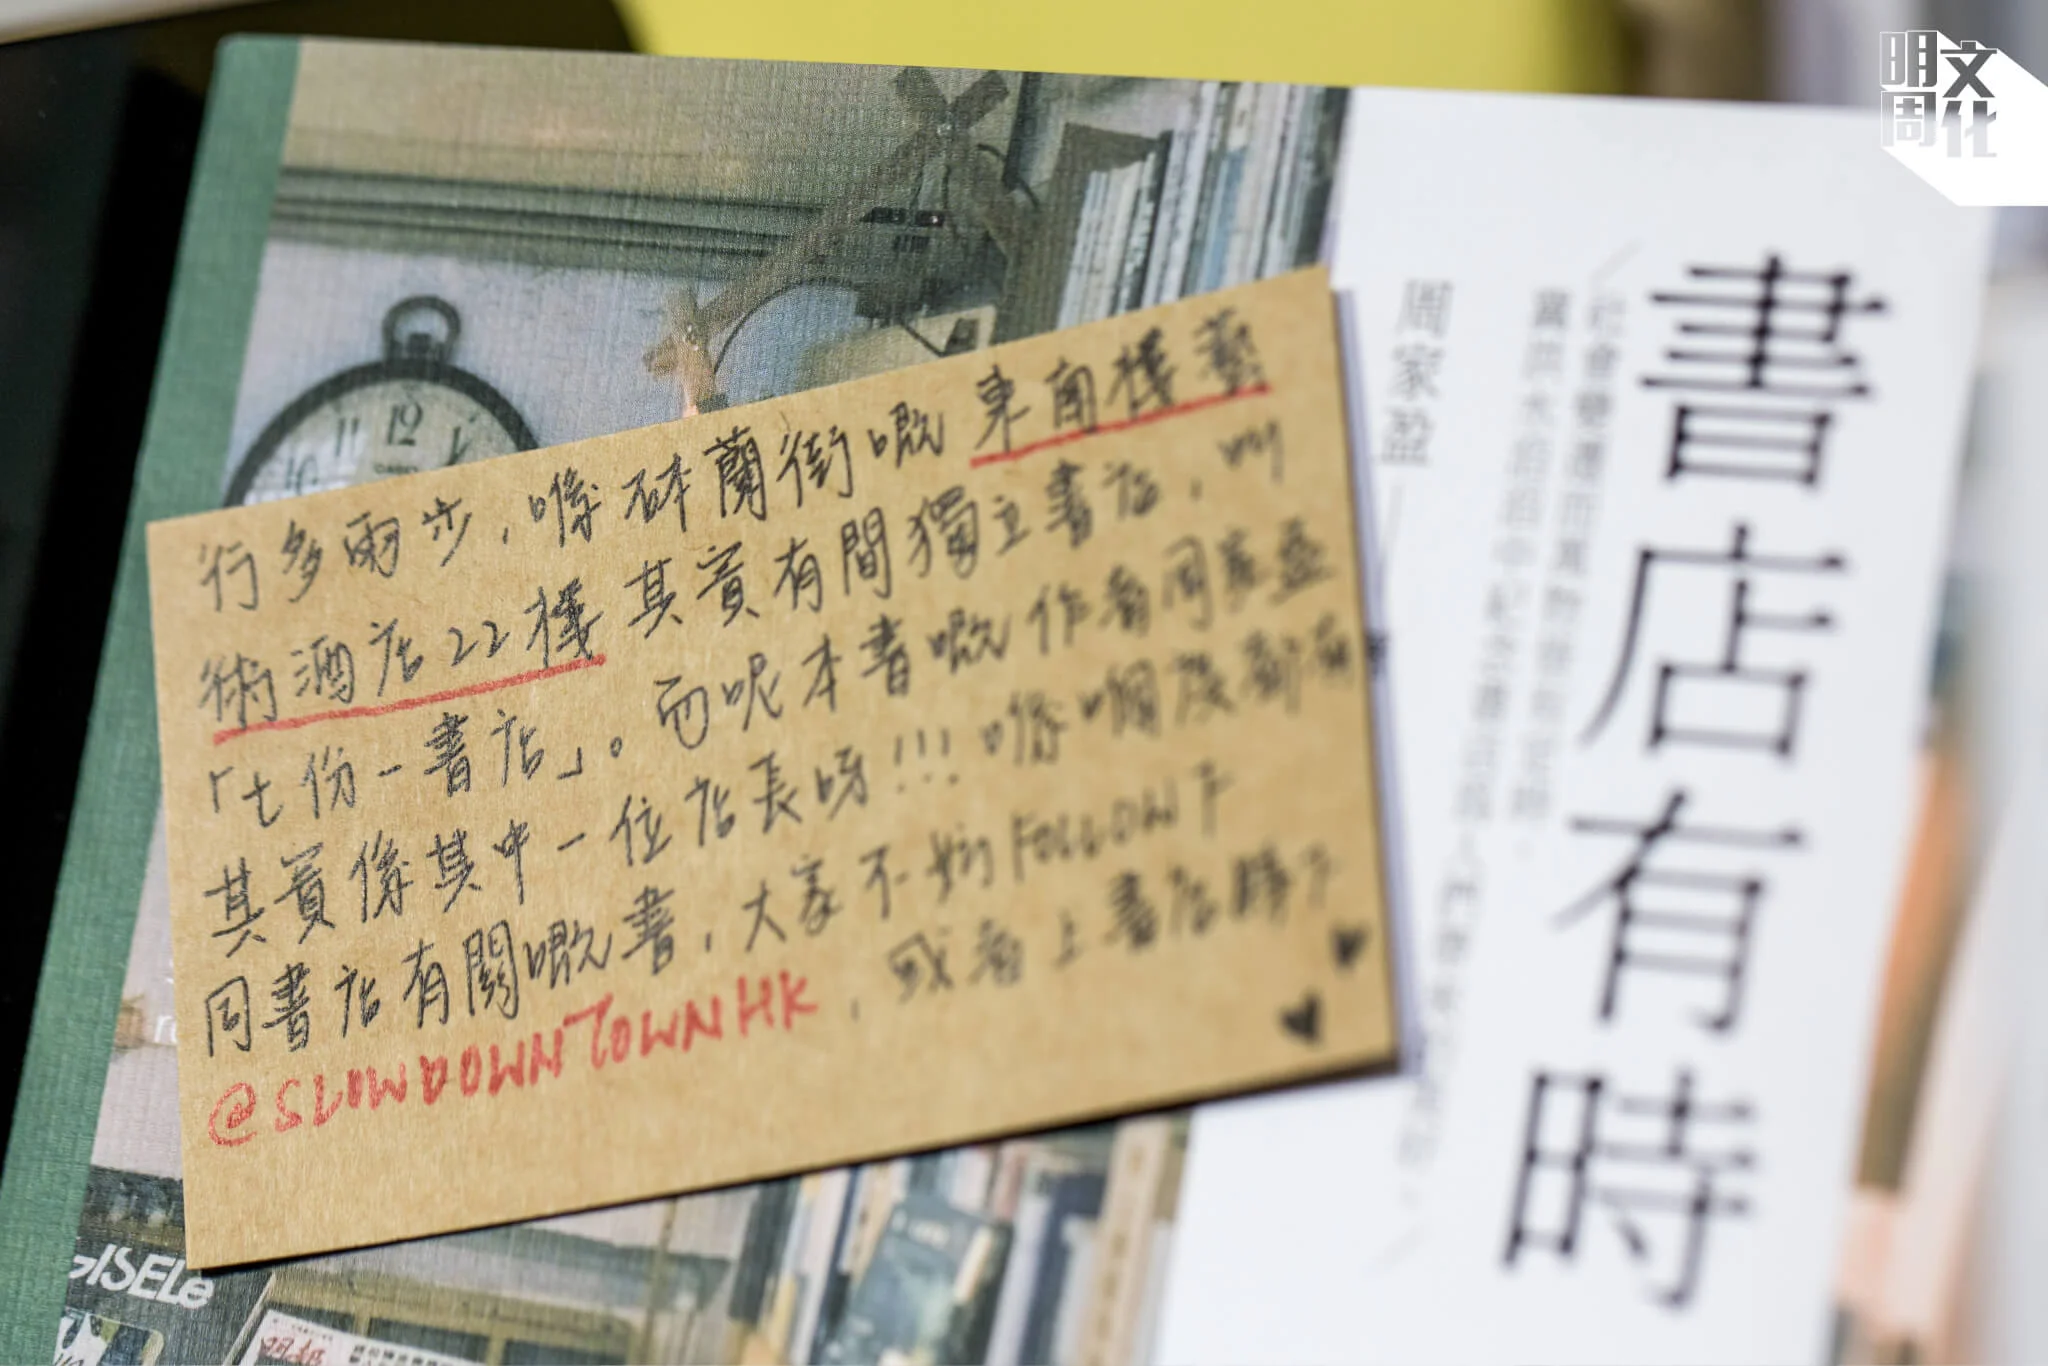 明周文化
書店有時
周家盈
行多兩步，喺砵蘭街嘅東南樓藝
術酒店22樓其實有間獨立書店，叫
「七份一書店」。而呢本書嘅作者周家盈
其實係其中一位店長呀!!! 喺嗰度都有
同書店有關嘅書，大家不妨FOLLOW下
@SLOWDOWNTOWNHK，或者上書店睇下
12
11
10
GISELe
明報